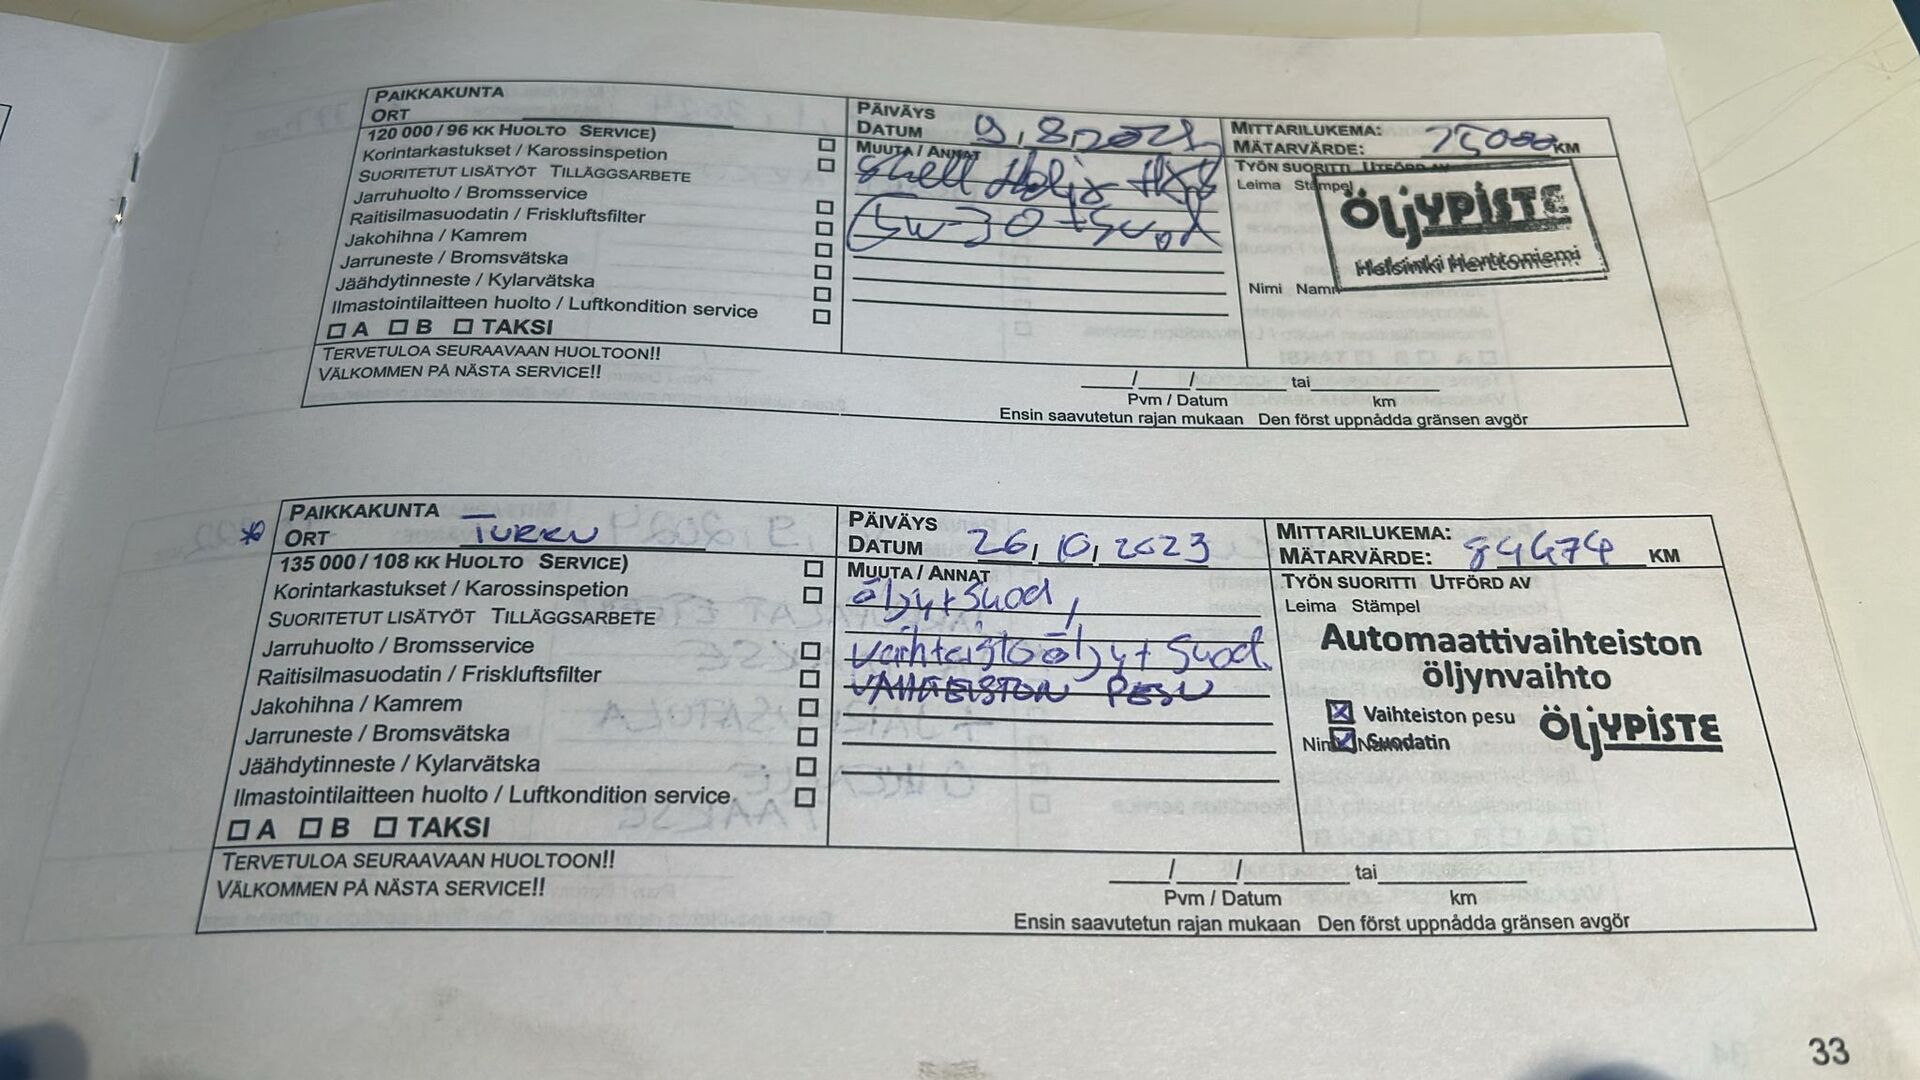 PAIKKAKUNTA
ORT
PÄIVÄYS
DATUM 9.8.2021
MITTARILUKEMA:
MÄTARVÄRDE: 75000 KM
120 000 / 96 KK HUOLTO SERVICE)
Korintarkastukset / Karossinspetion
SUORITETUT LISÄTYÖT TILLÄGGSARBETE
Jarruhuolto / Bromsservice
Raitisilmasuodatin / Friskluftsfilter
Jakohihna / Kamrem
Jarruneste / Bromsvätska
Jäähdytinneste / Kylarvätska
Ilmastointilaitteen huolto / Luftkondition service
A B TAKSI
MUUTA / ANNAT
Shell Helix HX8
5w-30 + Suod
TYÖN SUORITTI UTFÖRD AV
Leima Stämpel
ÖLJYPISTE
Helsinki Herttoniemi
Nimi Namn
TERVETULOA SEURAAVAAN HUOLTOON!!
VÄLKOMMEN PÅ NÄSTA SERVICE!!
/ / tai
Pvm / Datum km
Ensin saavutetun rajan mukaan Den först uppnådda gränsen avgör
* PAIKKAKUNTA
ORT TURKU
PÄIVÄYS
DATUM 26.10.2023
MITTARILUKEMA:
MÄTARVÄRDE: 84474 KM
135 000 / 108 KK HUOLTO SERVICE)
Korintarkastukset / Karossinspetion
SUORITETUT LISÄTYÖT TILLÄGGSARBETE
Jarruhuolto / Bromsservice
Raitisilmasuodatin / Friskluftsfilter
Jakohihna / Kamrem
Jarruneste / Bromsvätska
Jäähdytinneste / Kylarvätska
Ilmastointilaitteen huolto / Luftkondition service
A B TAKSI
MUUTA / ANNAT
öljy+Suod,
vaihteistoöljy+Suod.
VAIHTEISTON PESU
TYÖN SUORITTI UTFÖRD AV
Leima Stämpel
Automaattivaihteiston
öljynvaihto
Vaihteiston pesu
Suodatin
ÖLJYPISTE
Nimi Namn
TERVETULOA SEURAAVAAN HUOLTOON!!
VÄLKOMMEN PÅ NÄSTA SERVICE!!
/ / tai
Pvm / Datum km
Ensin saavutetun rajan mukaan Den först uppnådda gränsen avgör
33